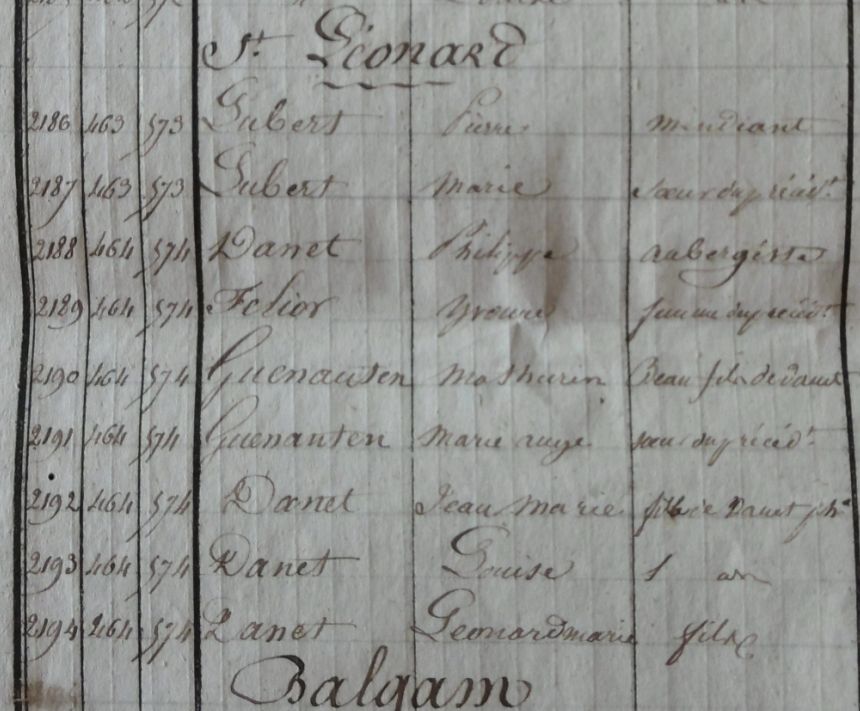 St Léonard
2186 463 573 Gubert Pierre mendiant
2187 463 573 Gubert Marie sœur du précédt
2188 464 574 Danet Philippe aubergiste
2189 464 574 Felior Yvonne femme du précédt
2190 464 574 Guenanten Mathurin Beau fils de Danet
2191 464 574 Guenanten Marie ange sœur du précédt
2192 464 574 Danet Jean Marie fils de Danet phe
2193 464 574 Danet Louise 1 an
2194 464 574 Danet Leonard marie fils
Balgam